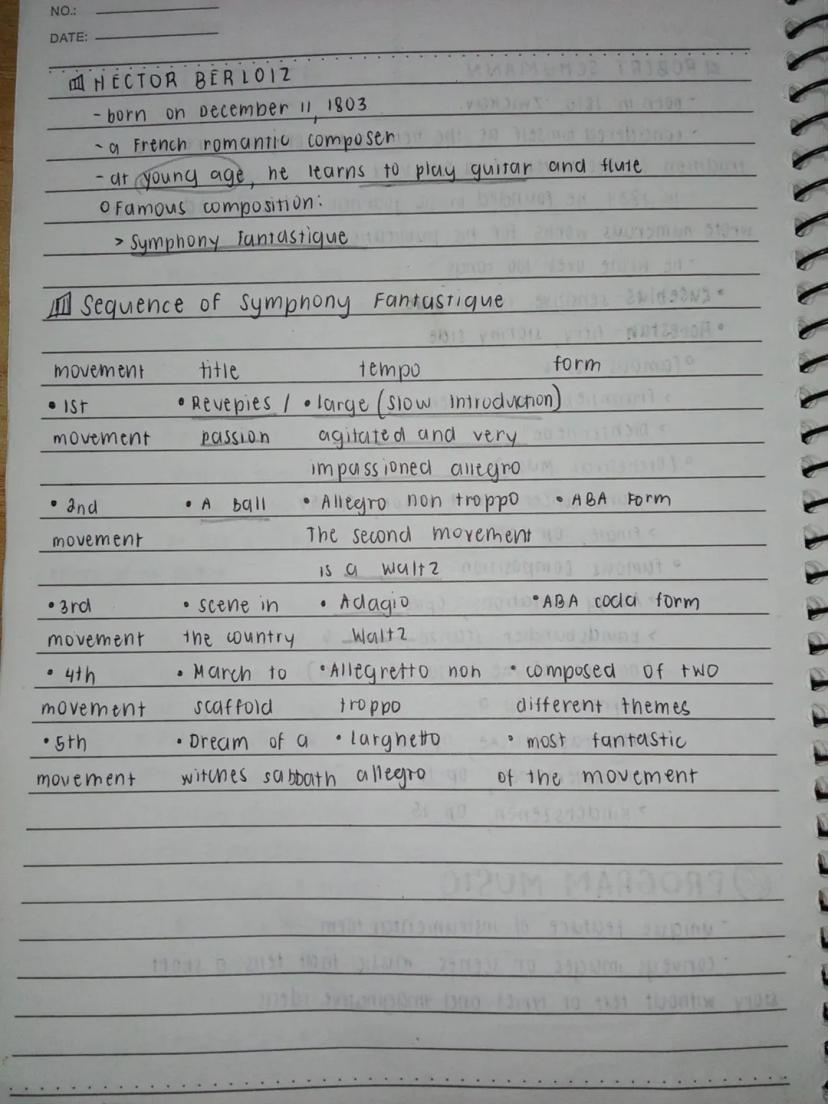 NO.:
DATE:
HECTOR BERLOIZ
- born on December 11, 1803
- a French romantic composer
- at young age, he learns to play guitar and flute
o Famous composition:
> Symphony Fantastique
Sequence of Symphony Fantastique
movement title tempo form
• 1st • Revepies / • large (slow introduction)
movement passion agitated and very
impassioned allegro
• 2nd • A ball • Allegro non troppo • ABA form
movement The second movement
is a waltz
• 3rd • scene in • Adagio • ABA coda form
movement the country waltz
• 4th • March to • Allegretto non • composed of two
movement scaffold troppo different themes
• 5th • Dream of a • larghetto • most fantastic
movement witches sabbath allegro of the movement